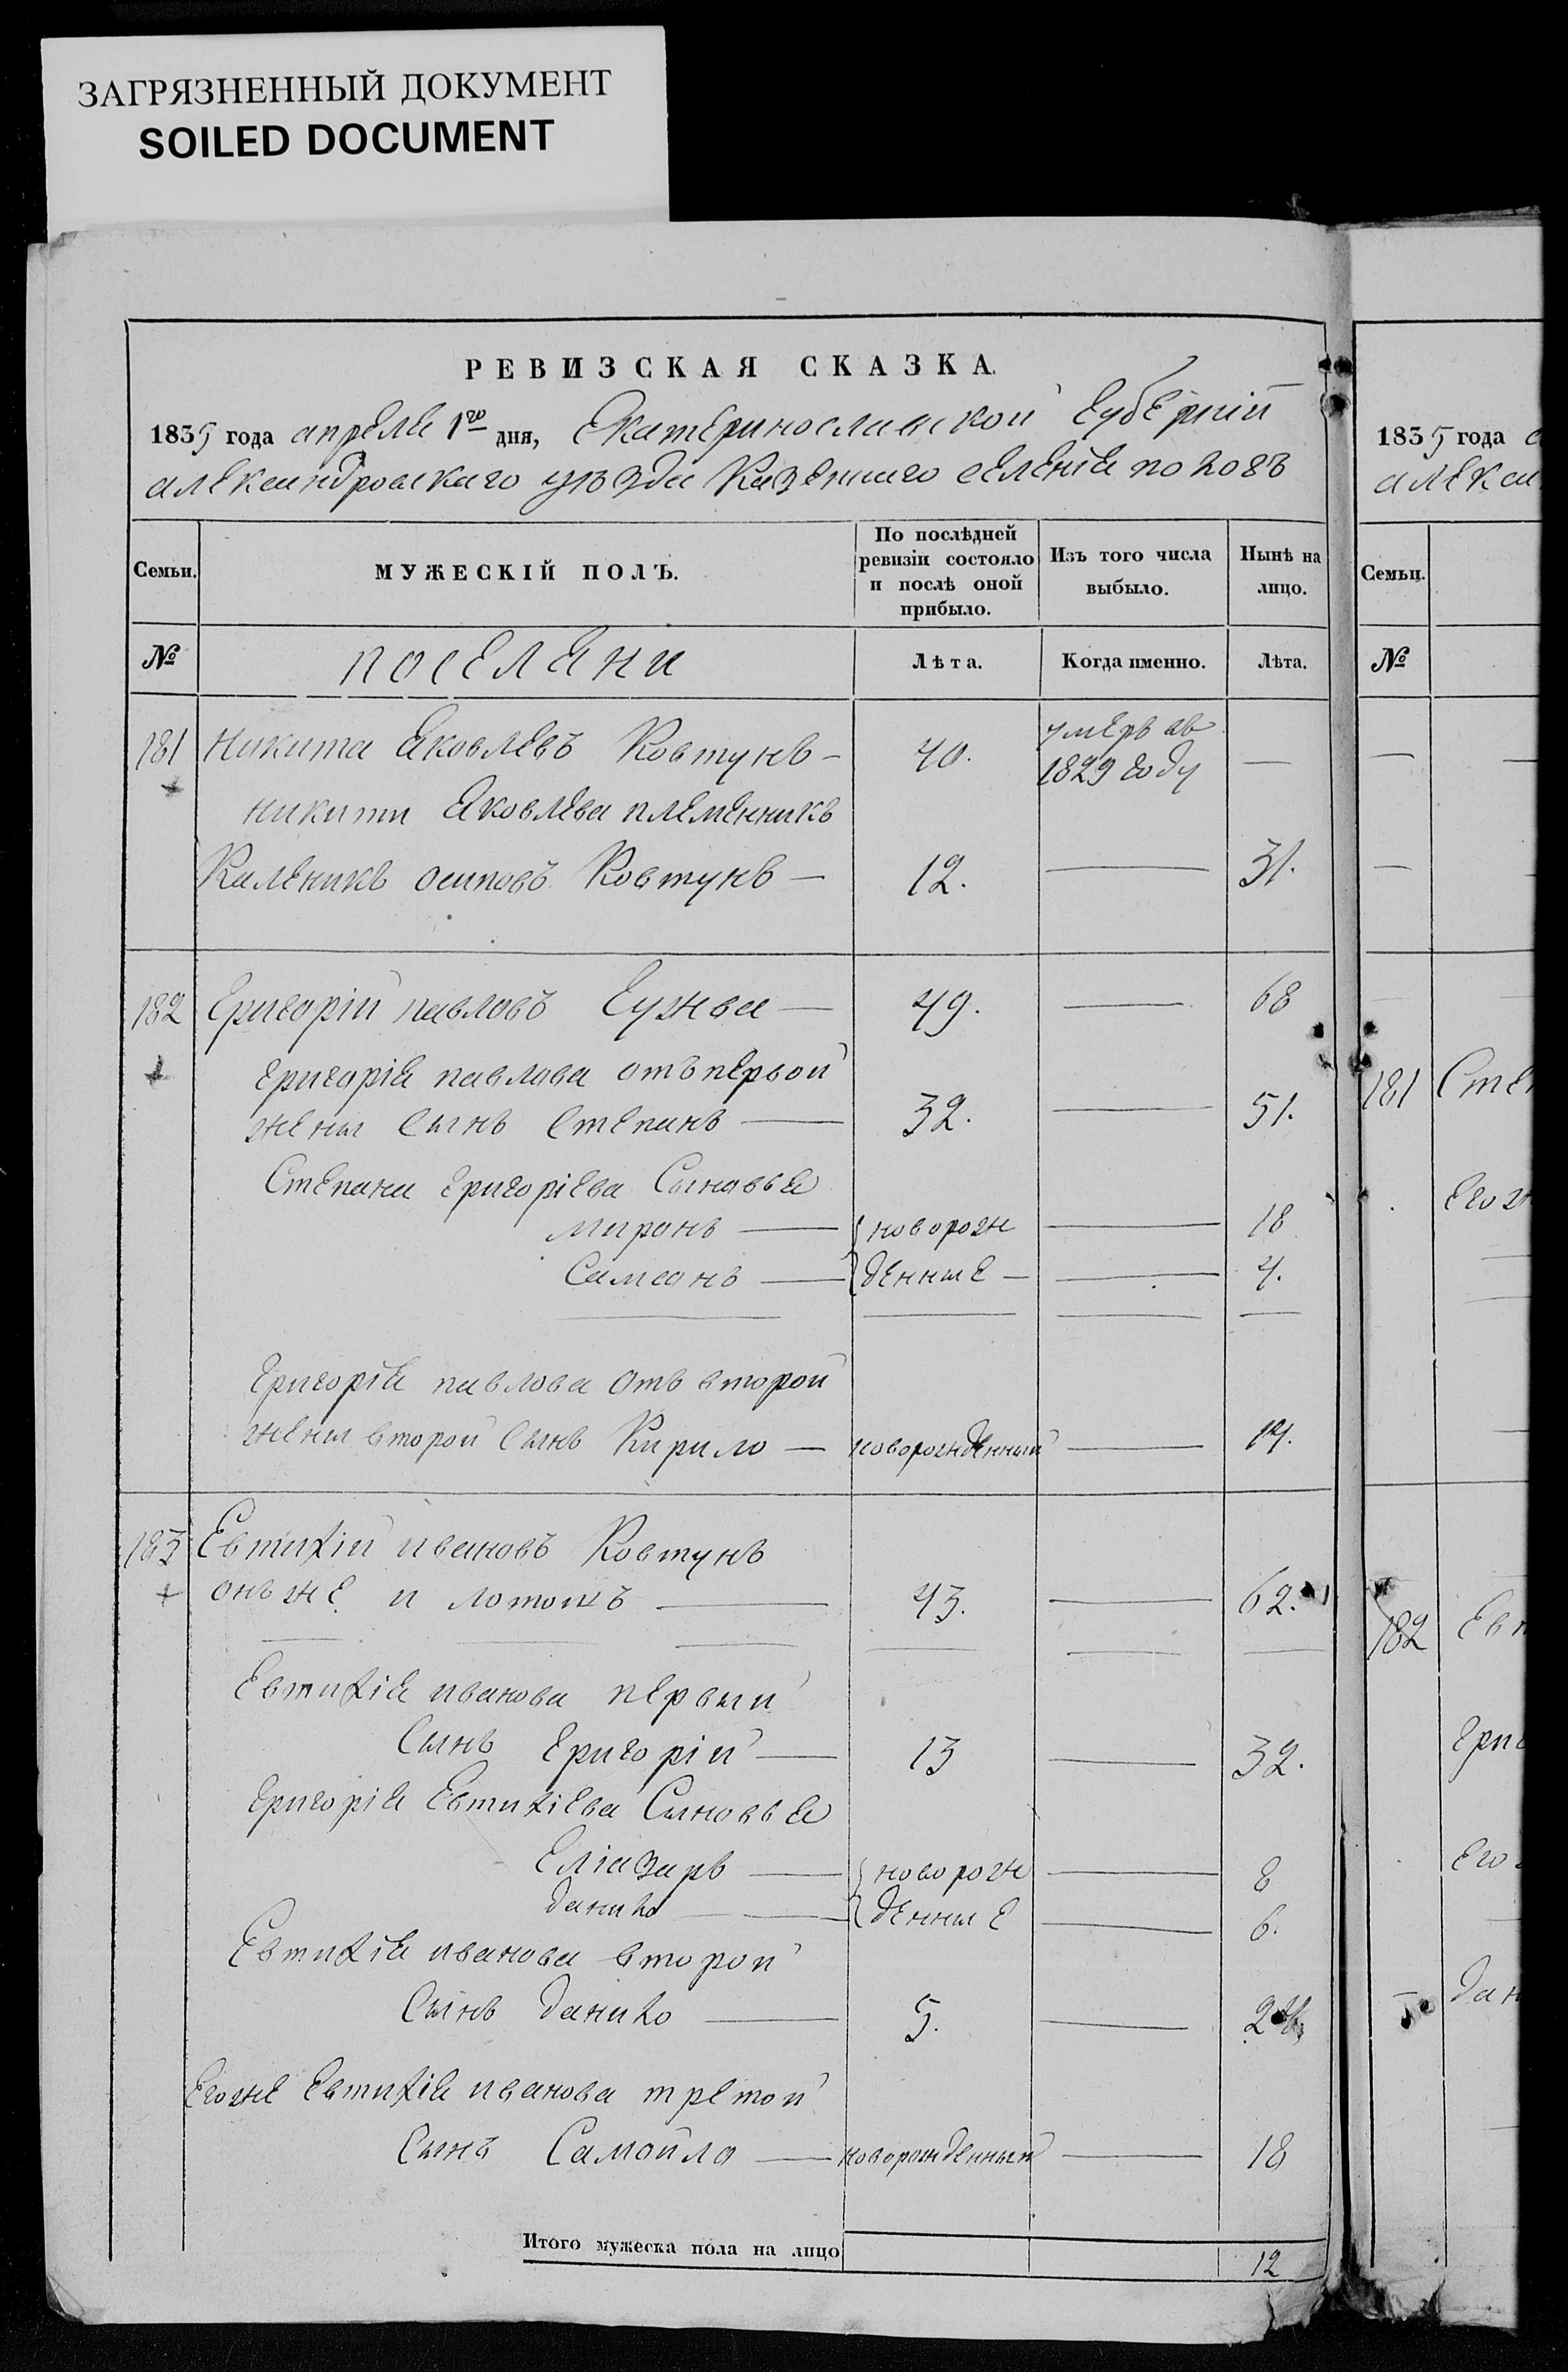 ЗАГРЯЗНЕННЫЙ ДОКУМЕНТ
SOILED DOCUMENT
РЕВИЗСКАЯ СКАЗКА.
1835 года апреля 1го дня, Екатеринославской Губернии
александровскаго уѣзда Казеннаго селения
Семьи.
МУЖЕСКІЙ ПОЛЪ.
По послѣдней ревизіи состояло и послѣ оной прибыло.
Изъ того числа выбыло.
Нынѣ на лицо.
№ поселяни Лѣта. Когда именно. Лѣта.
181 Никита Яковлевъ Ковтунъ – 40. умеръ въ 1829 году —
никиты Яковлева племенникъ
Каленикъ осиповъ Ковтунъ — 12. — 31.
182 Григорій павловъ Гужва — 49. — 68
григорія павлова отъ первой
жены Сынъ Степанъ — 32. — 51.
Степана григоріева Сыновья
миронъ — новорож — 18
Самсонъ — денные — — 4.
Григорія павлова отъ второй
жены второй Сынъ Кирило — новорожденный — 14.
183 Евтихій ивановъ Ковтунъ
онъ же и — 43. — 62.
Евтихія иванова первый
Сынъ григорій — 13 — 32.
григорія Евтихіева Сыновья
Еліазаръ — новорож — 8
данило — денные — 6.
Евтихія иванова второй
Сынъ данило — 5. —
Егоже Евтихія иванова третой
Сынъ Самойло — новорожденный — 18
Итого мужеска пола на лицо 12
1835 года
алексан
Семьи.
№
181 Степ
182